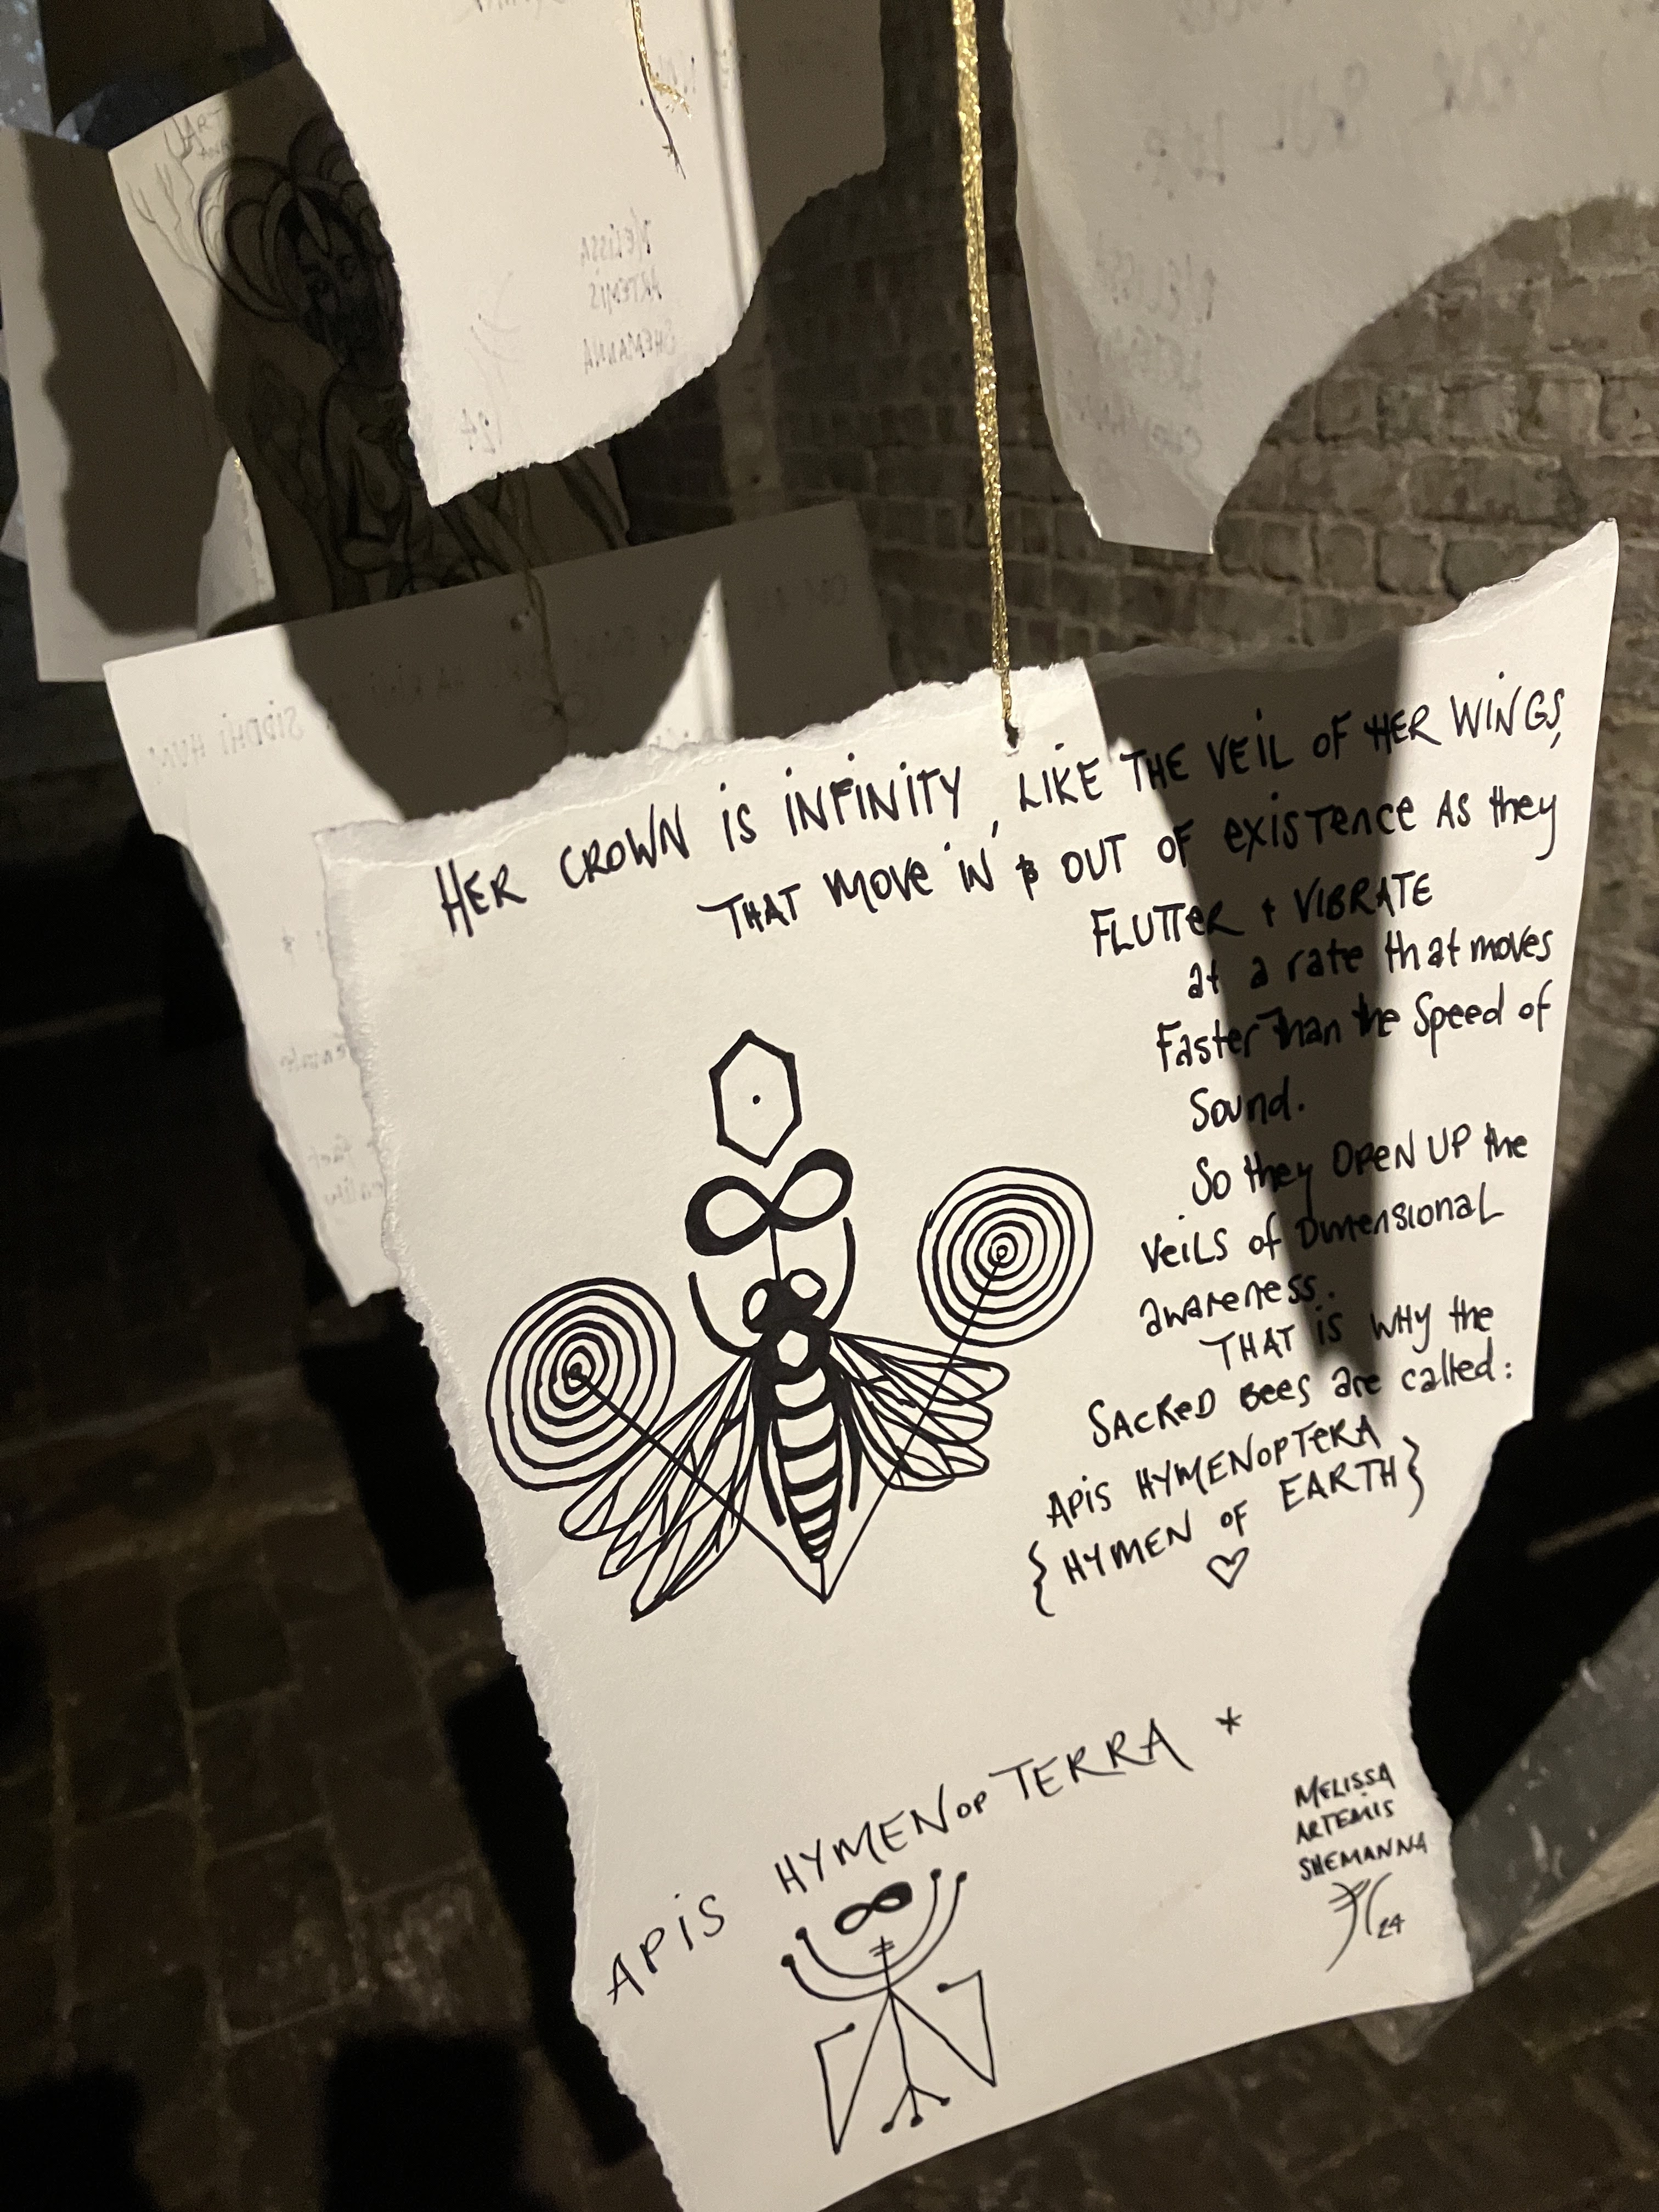 MELISSA
ARTEMIS
SHEMANNA
24
SIDDHI HUM
HER CROWN IS INFINITY, LIKE THE VEIL OF HER WINGS,
THAT MOVE IN & OUT OF EXISTENCE AS they
FLUTTER + VIBRATE
at a rate that moves
Faster Than the Speed of
Sound.
So they OPEN UP the
VEILS of Dimensional
awareness.
THAT is WHY the
SACRED Bees are called:
APIS HYMENOPTERA
{HYMEN OF EARTH}
APIS HYMENOPTERRA *
MELISSA
ARTEMIS
SHEMANNA
24